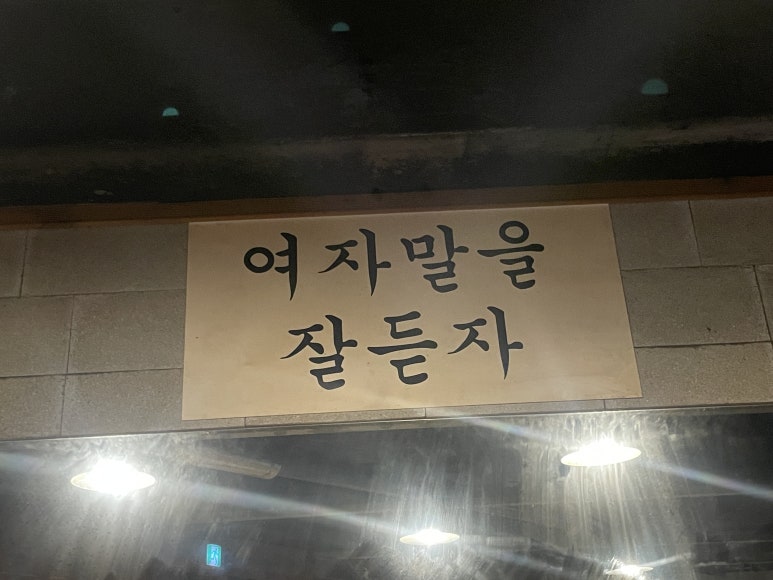 여자말을
잘듣자